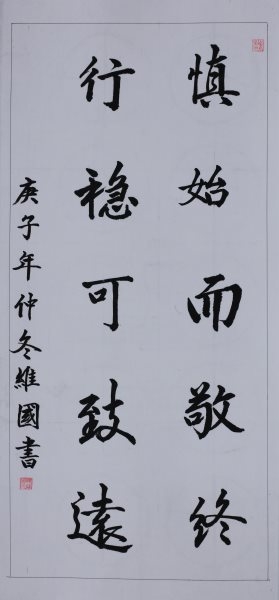 慎始而敬终
行稳可致遠
庚子年仲冬維國書